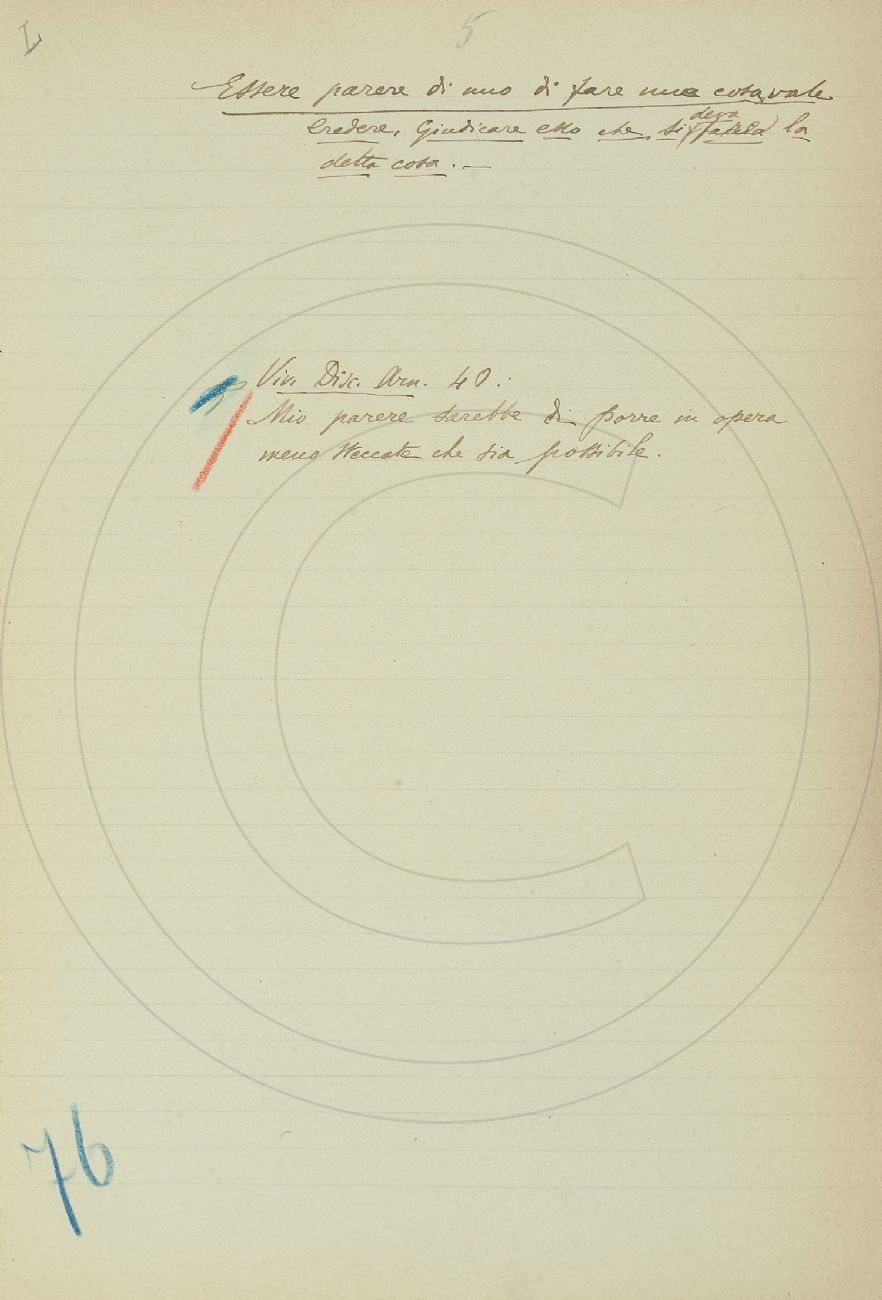 L
5
Essere parere di uno di fare una cosa, vale
Credere, Giudicare esso che si deva fare la
detta cosa. —
Viv. Disc. Arn. 40.:
Mio parere sarebbe di porre in opera
meno steccate che sia possibile.
76